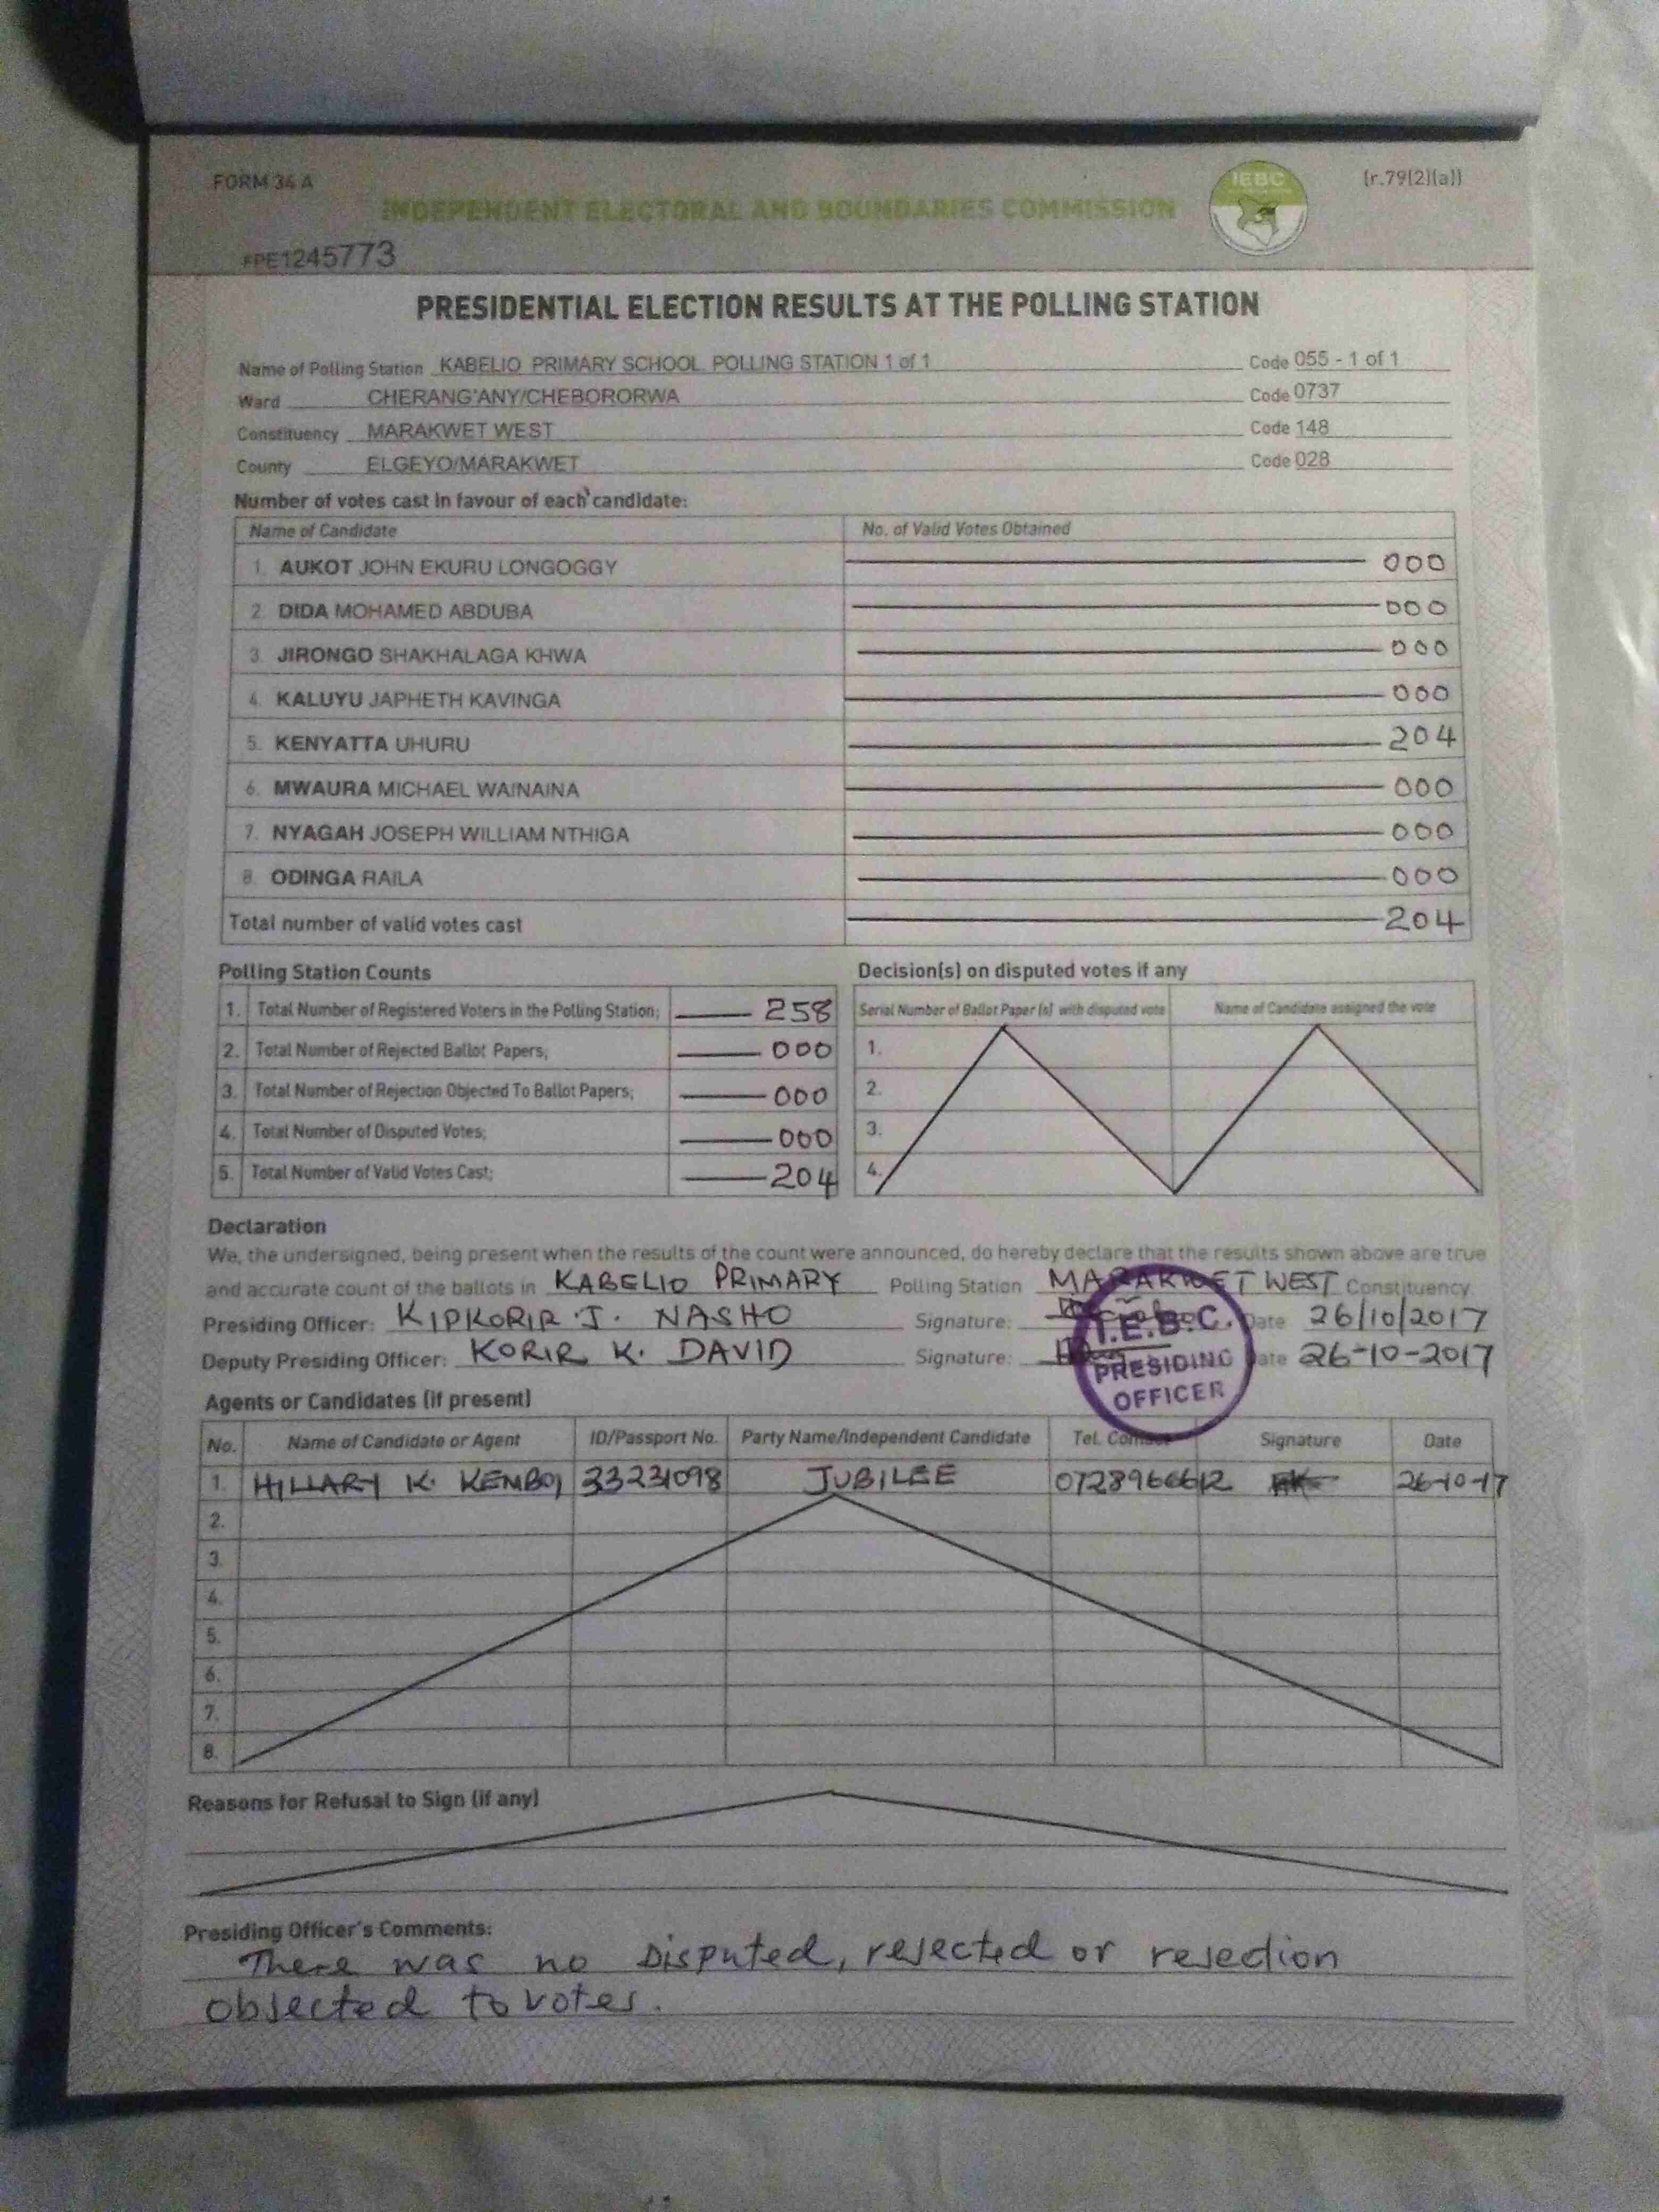 FORM 34 A
IEBC
(r.79(2)(a))
INDEPENDENT ELECTORAL AND BOUNDARIES COMMISSION
FPE1245773
PRESIDENTIAL ELECTION RESULTS AT THE POLLING STATION
Name of Polling Station KABELIO PRIMARY SCHOOL POLLING STATION 1 of 1 Code 055 - 1 of 1
Ward CHERANG'ANY/CHEBORORWA Code 0737
Constituency MARAKWET WEST Code 148
County ELGEYO/MARAKWET Code 028
Number of votes cast in favour of each candidate:
Name of Candidate No. of Valid Votes Obtained
1. AUKOT JOHN EKURU LONGOGGY 000
2. DIDA MOHAMED ABDUBA 000
3. JIRONGO SHAKHALAGA KHWA 000
4. KALUYU JAPHETH KAVINGA 000
5. KENYATTA UHURU 204
6. MWAURA MICHAEL WAINAINA 000
7. NYAGAH JOSEPH WILLIAM NTHIGA 000
8. ODINGA RAILA 000
Total number of valid votes cast 204
Polling Station Counts
1. Total Number of Registered Voters in the Polling Station; 258
2. Total Number of Rejected Ballot Papers; 000
3. Total Number of Rejection Objected To Ballot Papers; 000
4. Total Number of Disputed Votes; 000
5. Total Number of Valid Votes Cast; 204
Decision(s) on disputed votes if any
Serial Number of Ballot Paper (s) with disputed vote Name of Candidate assigned the vote
1.
2.
3.
4.
Declaration
We, the undersigned, being present when the results of the count were announced, do hereby declare that the results shown above are true
and accurate count of the ballots in KABELIO PRIMARY Polling Station MARAKWET WEST Constituency
Presiding Officer: KIPKORIR .J. NASHO Signature: Date 26/10/2017
Deputy Presiding Officer: KORIR K. DAVID Signature: Date 26-10-2017
I.E.B.C.
PRESIDING
OFFICER
Agents or Candidates (if present)
No. Name of Candidate or Agent ID/Passport No. Party Name/Independent Candidate Tel. Contact Signature Date
1. HILLARY K. KEMBOI 33231098 JUBILEE 0728966612 26-10-17
2.
3.
4.
5.
6.
7.
8.
Reasons for Refusal to Sign (if any)
Presiding Officer's Comments:
There was no Disputed, rejected or rejection
objected to votes.